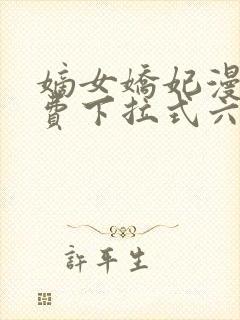 嫡女嬌妃漫
費下拉式六
許平生